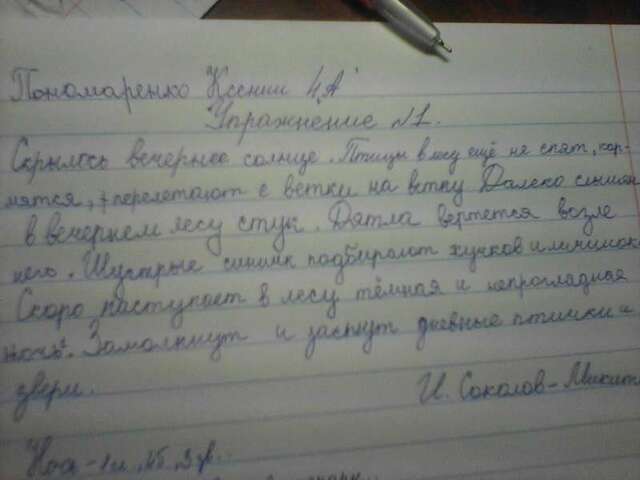 Пономаренко Ксении 4 "А"
Упражнение №1.
Скрылось вечернее солнце. Птицы в лесу ещё не спят, кор-
мятся, перелетают с ветки на ветку Далеко слышен
в вечернем лесу стук. Дятла вертется возле
него. Шустрые синички подбирают жучков и личинок
Скоро наступает в лесу тёмная и непроглядная
ночь. Замолкнут и заснут дневные птички и
звери.
И. Соколов-Микит